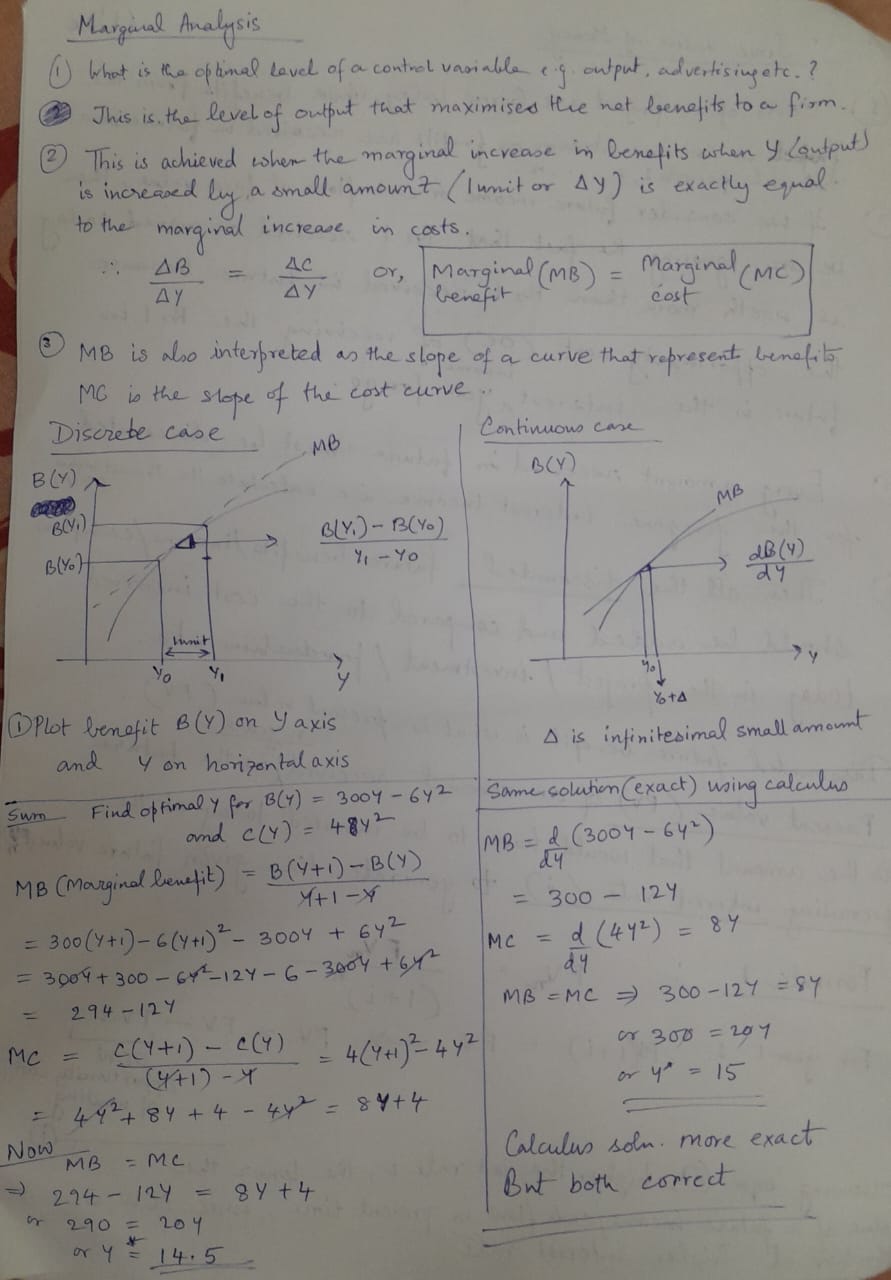 Marginal Analysis
① What is the optimal level of a control variable e.g. output, advertising etc. ?
This is the level of output that maximises the net benefits to a firm.
② This is achieved when the marginal increase in benefits when Y (output)
is increased by a small amount (1 unit or ΔY) is exactly equal
to the marginal increase in costs.
∴ ΔB/ΔY = ΔC/ΔY or, Marginal benefit (MB) = Marginal cost (MC)
③ MB is also interpreted as the slope of a curve that represent benefits
MC is the slope of the cost curve.
Discrete case
MB
B(Y)
B(Y₁)
B(Y₀)
B(Y₁) - B(Y₀) / Y₁ - Y₀
1 unit
Y₀ Y₁ Y
① Plot benefit B(Y) on Y axis
and Y on horizontal axis
Sum Find optimal Y for B(Y) = 300Y - 6Y²
and C(Y) = 4Y²
MB (Marginal benefit) = B(Y+1) - B(Y) / Y+1-Y
= 300(Y+1) - 6(Y+1)² - 300Y + 6Y²
= 300Y + 300 - 6Y² - 12Y - 6 - 300Y + 6Y²
= 294 - 12Y
MC = C(Y+1) - C(Y) / (Y+1) - Y = 4(Y+1)² - 4Y²
= 4Y² + 8Y + 4 - 4Y² = 8Y+4
Now
MB = MC
⇒ 294 - 12Y = 8Y+4
or 290 = 20Y
or Y* = 14.5
Continuous case
B(Y)
MB
dB(Y)/dY
Y₀ Y
Y₀+Δ
Δ is infinitesimal small amount
Same solution (exact) using calculus
MB = d/dY (300Y - 6Y²)
= 300 - 12Y
MC = d/dY (4Y²) = 8Y
MB = MC ⇒ 300 - 12Y = 8Y
or 300 = 20Y
or Y* = 15
Calculus soln. more exact
But both correct